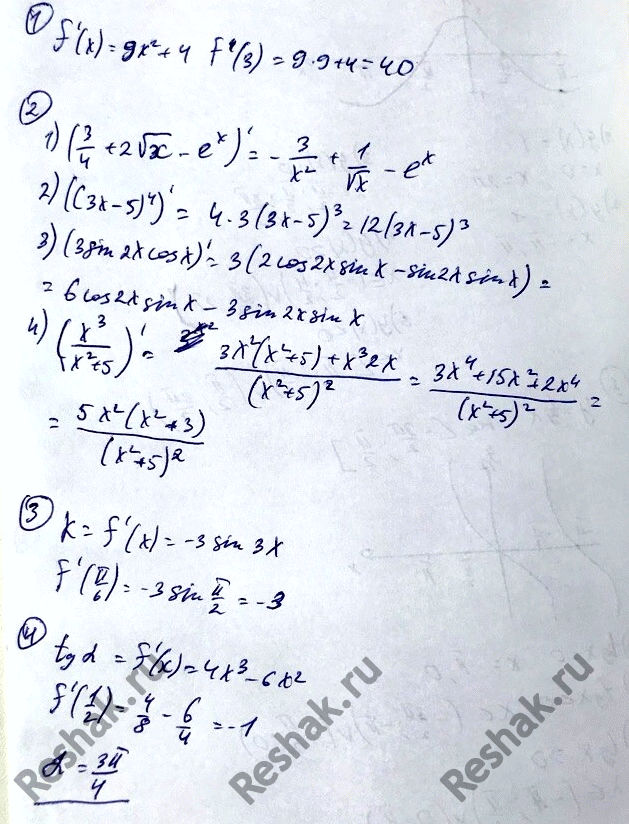 ① f'(x) = 9x² + 4 f'(3) = 9·9+4 = 40
②
1) (3/4 + 2√x − eˣ)' = − 3/x² + 1/√x − eˣ
2) ((3x−5)⁴)' = 4·3(3x−5)³ = 12(3x−5)³
3) (3sin 2x cos x)' = 3(2cos2x sin x − sin2x sin x) =
= 6cos2x sin x − 3sin2x sin x
4) (x³/(x²+5))' = (3x²(x²+5) + x³2x)/(x²+5)² = (3x⁴+15x²+2x⁴)/(x²+5)² =
= 5x²(x²+3)/(x²+5)²
③ k = f'(x) = −3 sin 3x
f'(π/6) = −3 sin π/2 = −3
④ tg α = f'(x) = 4x³ − 6x²
f'(1/2) = 4/8 − 6/4 = −1
α = 3π/4
Reshak.ru
Reshak.ru
Reshak.ru